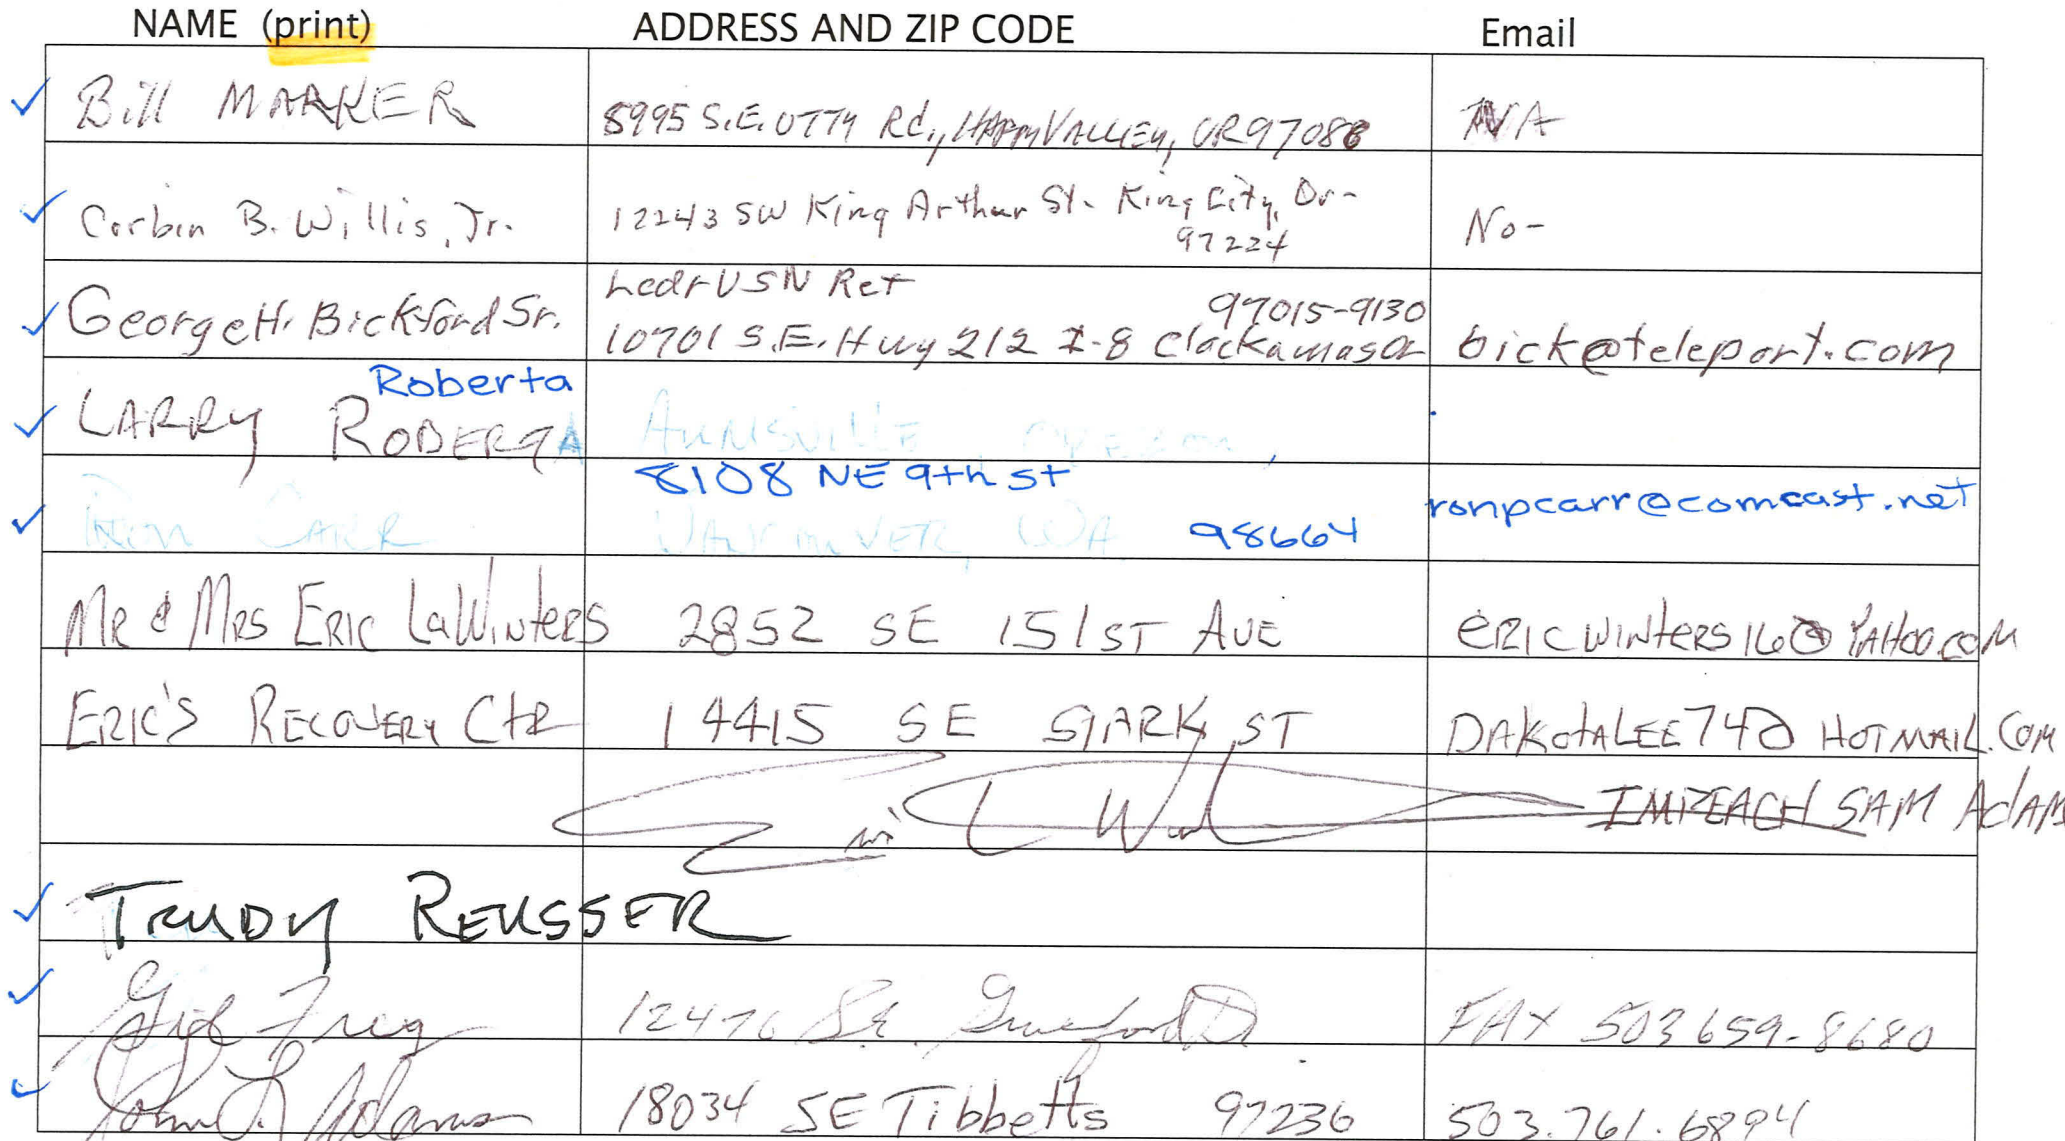 NAME (print) ADDRESS AND ZIP CODE Email
Bill MARKER 8995 S.E. OTTY Rd., HAPPY VALLEY, OR 97086 NA
Corbin B. Willis, Jr. 12243 SW King Arthur St. King City, Or-
97224 No-
George H. Bickford Sr. Lcdr USN Ret
97015-9130
10701 S.E. Hwy 212 I-8 Clackamas Or bick@teleport.com
Roberta
LARRY ROBERTA AUMSVILLE, OREGON,
8108 NE 9th St ronpcarr@comcast.net
Ron CARR VANCOUVER, WA 98664
MR & MRS ERIC LaWinters 2852 SE 151ST AVE ERICWINTERS16@YAHOO.COM
ERIC'S RECOVERY CtR 14415 SE STARK ST DAKOTALEE74@HOTMAIL.COM
IMPEACH SAM ADAMS
TRUDY REUSSER
Frey 12476 S.E. FAX 503 659-8680
John L Adams 18034 SE Tibbetts 97236 503.761.6894